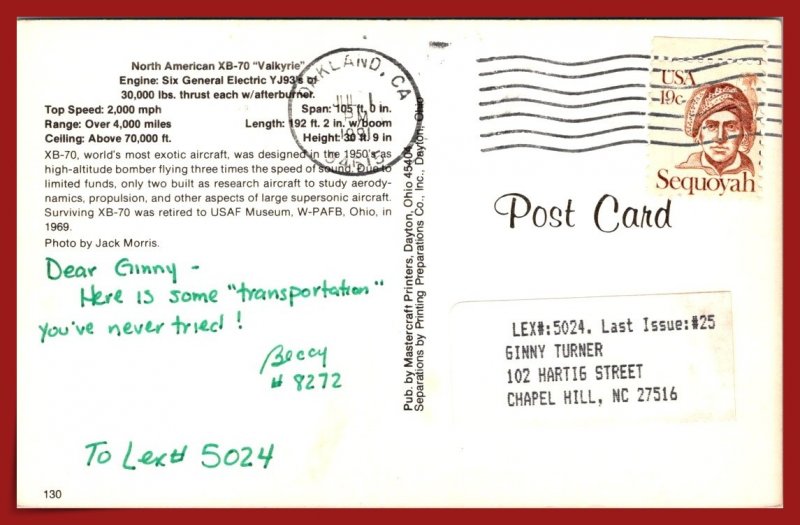 North American XB-70 "Valkyrie"
Engine: Six General Electric YJ93's of
30,000 lbs. thrust each w/afterburner.
Top Speed: 2,000 mph
Span: 105 ft. 0 in.
Range: Over 4,000 miles
Length: 192 ft. 2 in. w/boom
Ceiling: Above 70,000 ft.
Height: 30 ft. 9 in
XB-70, world's most exotic aircraft, was designed in the 1950's as
high-altitude bomber flying three times the speed of sound. Due to
limited funds, only two built as research aircraft to study aerody-
namics, propulsion, and other aspects of large supersonic aircraft.
Surviving XB-70 was retired to USAF Museum, W-PAFB, Ohio, in
1969.
Photo by Jack Morris.
Dear Ginny -
Here is some "transportation"
you've never tried!
Beccy
# 8272
To Lex# 5024
130
Pub. by Mastercraft Printers, Dayton, Ohio 45404
Separations by Printing Preparations Co., Inc., Dayton, Ohio
OAKLAND, CA
PM
1991
USA
19c
Sequoyah
Post Card
LEX#:5024. Last Issue:#25
GINNY TURNER
102 HARTIG STREET
CHAPEL HILL, NC 27516